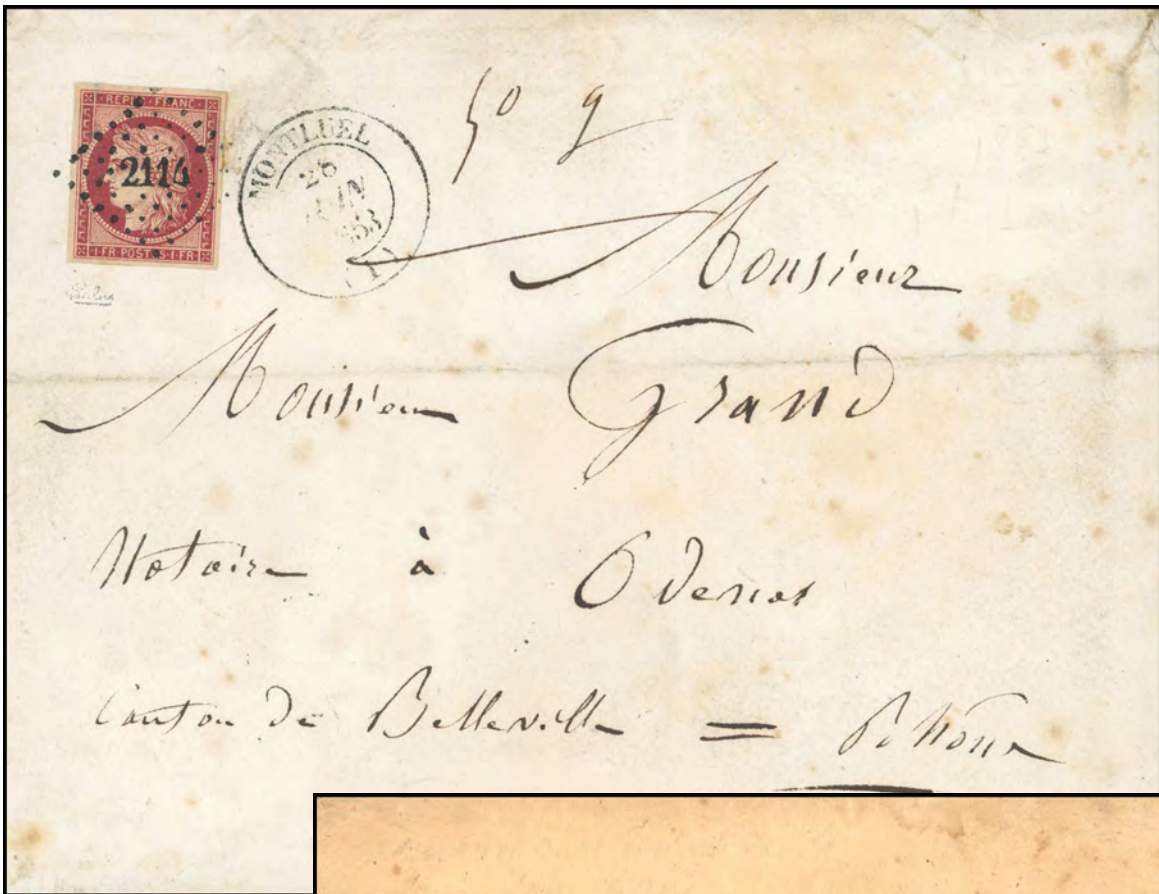 REPUB. FRANC.
2114
1 FR. POSTES. 1 FR.
MONTLUEL
28
JUIN
1853
(1)
50 g
Monsieur
Monsieur Grand
Notaire à Odenas
Canton de Belleville = Rhône